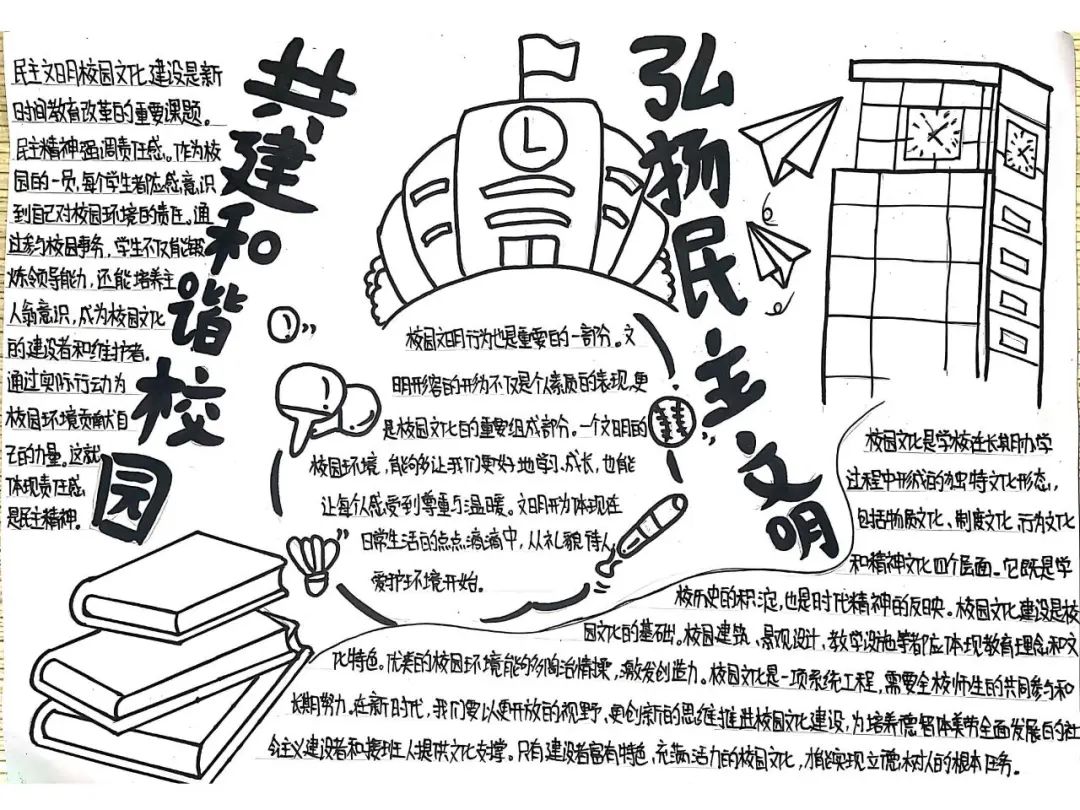 共建和谐校园
弘扬民主文明
民主文明校园文化建设是新
时间教育改革的重要课题。
民主精神强调责任感。作为校
园的一员，每个学生都应感意识
到自己对校园环境的责任。通
过参与校园事务，学生不仅能锻
炼领导能力，还能培养主
人翁意识，成为校园文化
的建设者和维护者。
通过实际行动为
校园环境贡献自
己的力量。这就
体现责任感，
是民主精神。
校园文明行为也是重要的一部分。文
明形容的行为不仅是个人素质的表现，更
是校园文化的重要组成部分。一个文明的
校园环境，能够让我们更好地学习、成长，也能
让每个人感受到尊重与温暖。文明行为体现在
日常生活的点点滴滴中，从礼貌待人，
爱护环境开始。
校园文化是学校在长期办学
过程中形成的独特文化形态，
包括物质文化、制度文化、行为文化
和精神文化四个层面。它既是学
校历史的积淀，也是时代精神的反映。校园文化建设是校
园文化的基础。校园建筑、景观设计、教学设施等都应体现教育理念和文
化特色。优美的校园环境能够陶冶情操，激发创造力。校园文化是一项系统工程，需要全校师生的共同参与和
长期努力。在新时代，我们要以更开放的视野，更创新的思维推进校园文化建设，为培养德智体美劳全面发展的社
会主义建设者和接班人提供文化支撑。只有建设者富有特色，充满活力的校园文化，才能实现立德树人的根本任务。